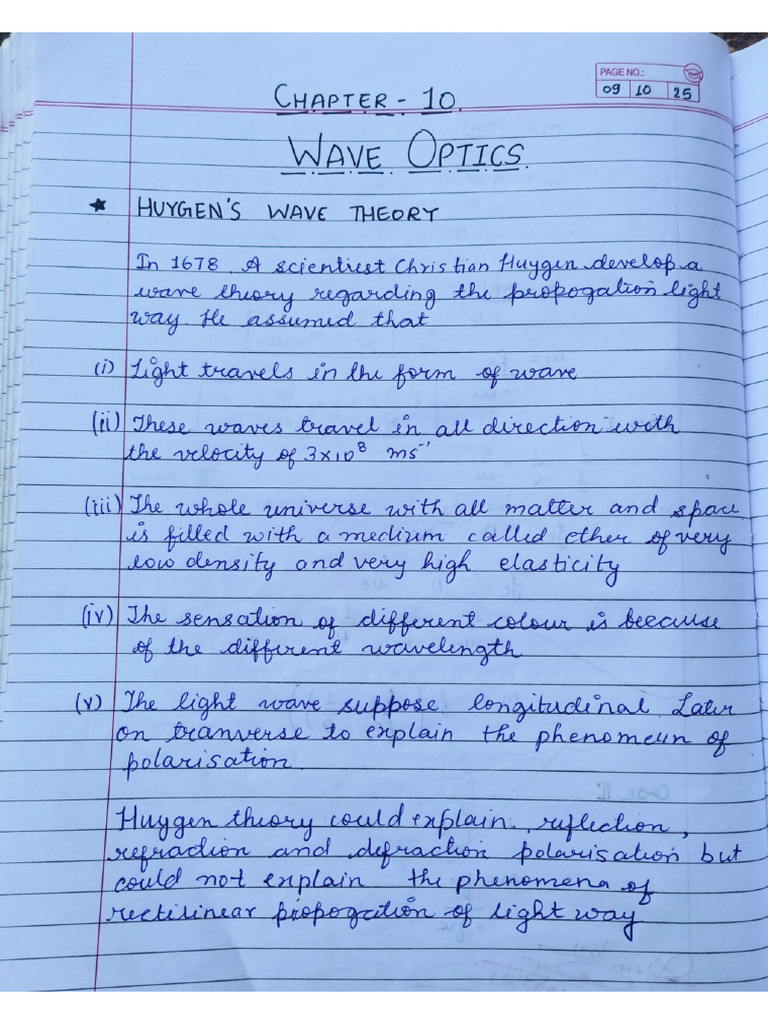 PAGE NO.:
09 10 25
CHAPTER - 10.
WAVE OPTICS.
★ HUYGEN'S WAVE THEORY
In 1678. A scientiest Christian Huygen develop a
wave theory regarding the propogation light
way. He assumed that
(i) Light travels in the form of wave
(ii) These waves travel in all direction with
the velocity of 3×10⁸ ms⁻¹
(iii) The whole universe with all matter and space
is filled with a medium called ether of very
low density and very high elasticity
(iv) The sensation of different colour is beecause
of the different wavelength
(v) The light wave suppose longitudinal Later
on tranverse to explain the phenomeun of
polarisation.
Huygen theory could explain reflection,
refraction and defraction polarisation but
could not explain the phenomena of
rectilinear propogation of light way
Case II